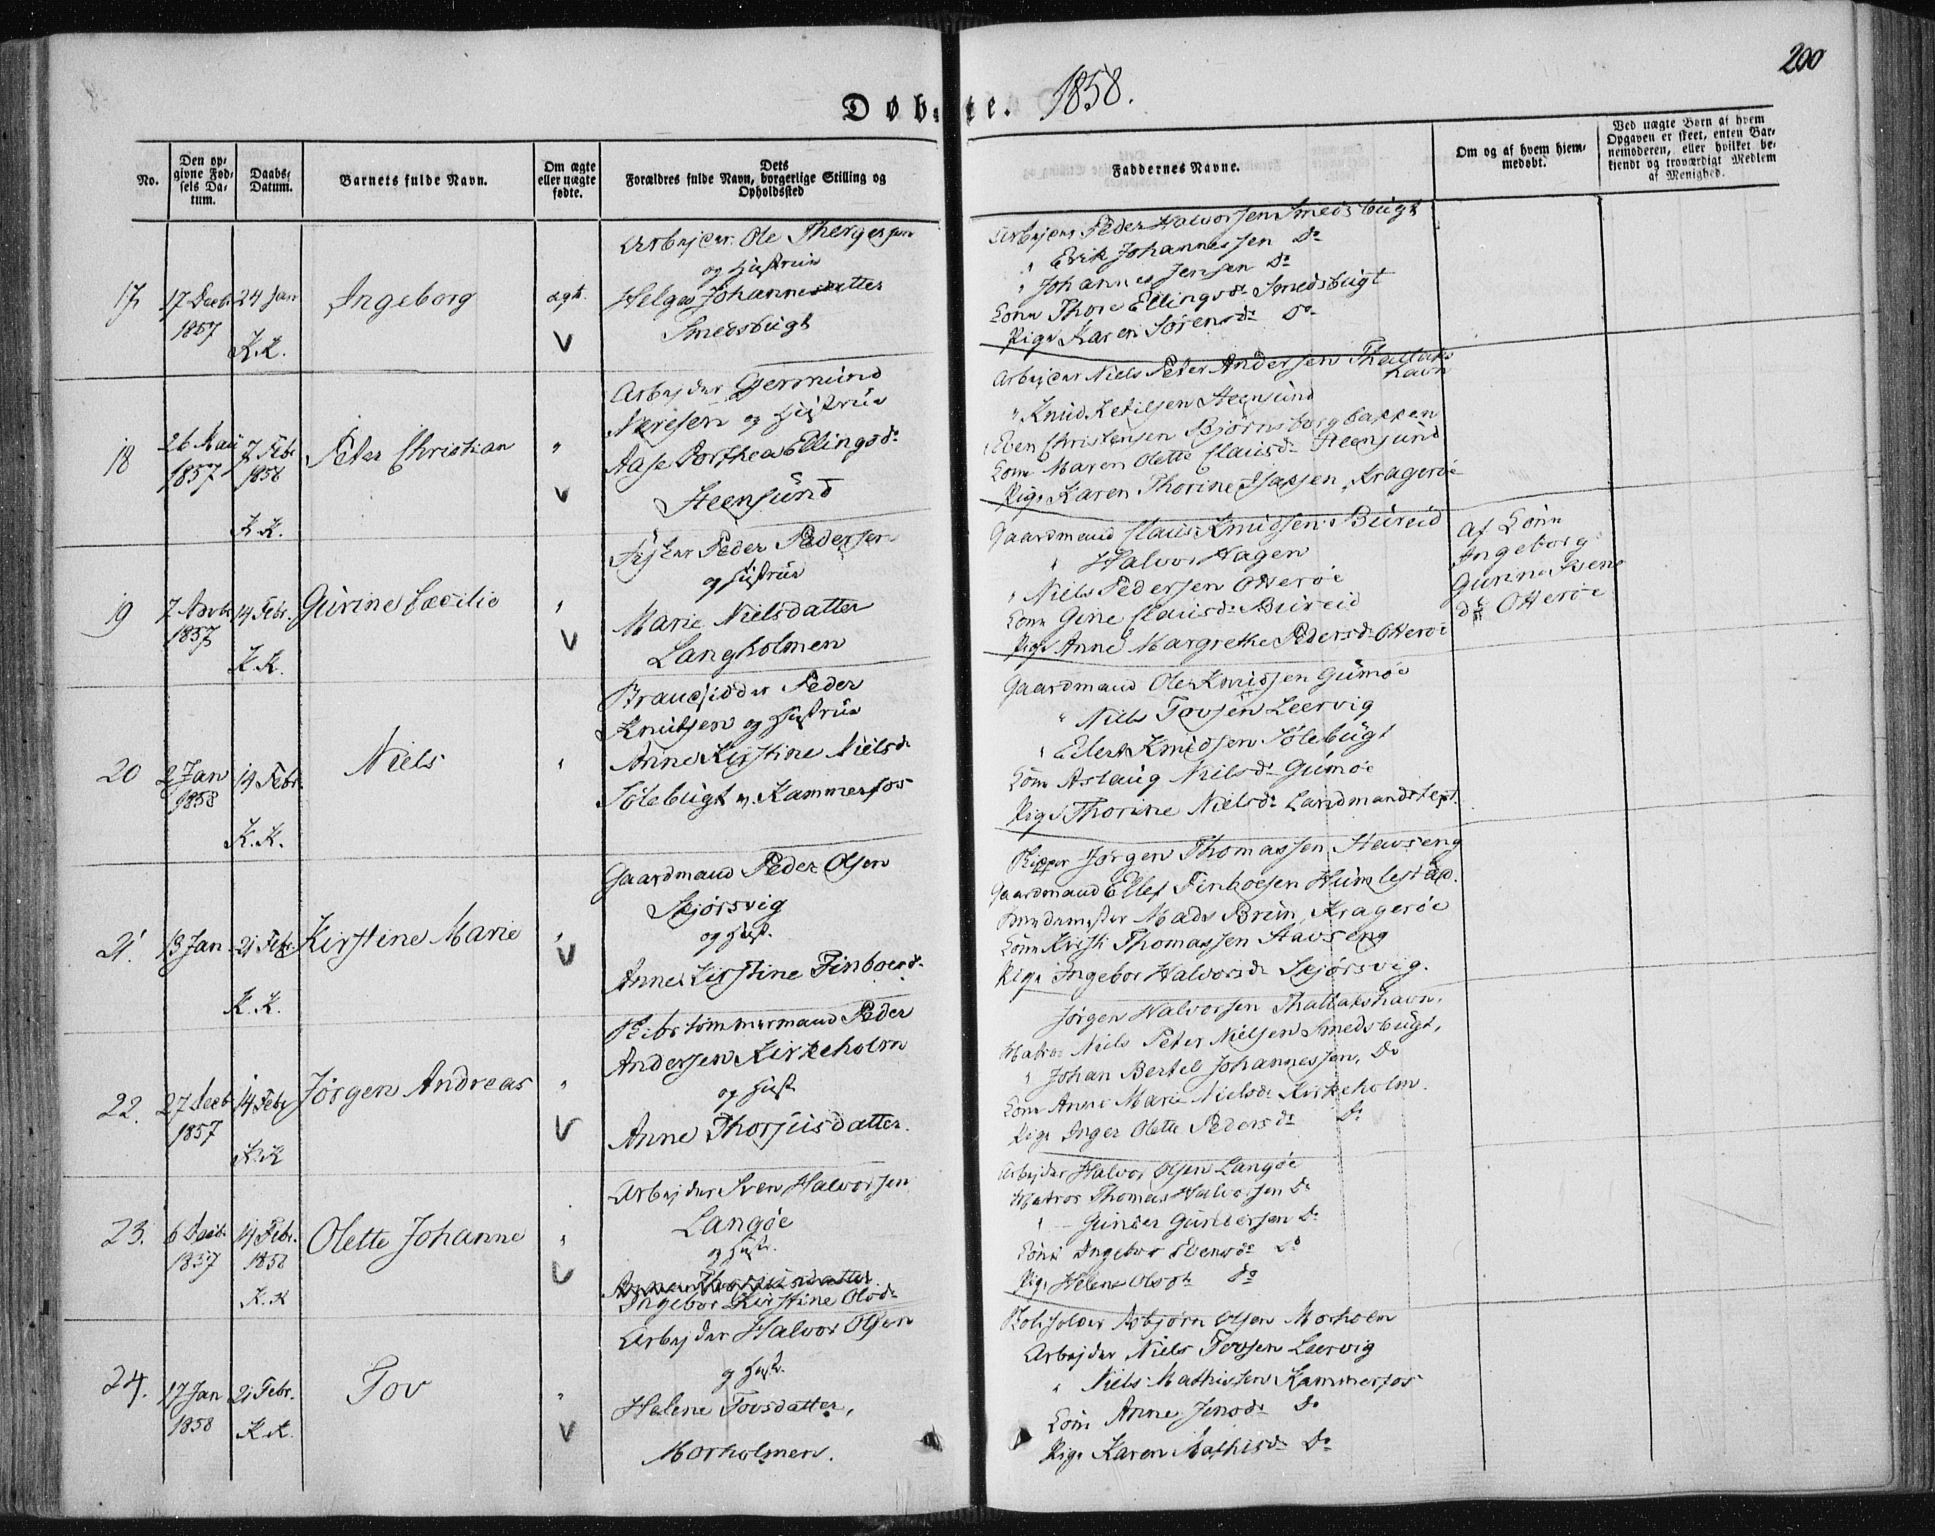 200
Døbte. 1858.
No.
Den opgivne Fødsels Datum.
Daabs-Datum.
Barnets fulde Navn.
Om ægte eller uægte fødte.
Dets Forældres fulde Navn, borgerlige Stilling og Opholdssted
Faddernes Navne.
Om og af hvem hjemmedøbt.
Ved uægte Børn af hvem Opgaven er skeet, enten Barnemoderen, eller hvilket bekjendt og troværdigt Medlem af Menighed.
17 17 Decbr 1857 24 Jan K.K.
Ingeborg
ægt.
Arbejder Ole Thergersen
og Hustrue
Helge Johannesdatter
Smedsbugt
Arbejder Peder Halvorsen Smedsbugt
" Erik Johannessen Do
" Johannes Jensen Do
Kone Thore Ellingsdr Smedsbugt
Pige Karen Sørensdr Do
18 26 1857 7 Febr 1858 K.K.
Peter Christian
"
Arbejder Gjermund
og Hustrue
Aase Dorthea Ellingsdr
Steensund
Arbejder Niels Peter Andersen Thallakshavn
" Knud Ketilsen Steensund
Even Christensen Bjørnsborgbakken
Kone Maren Olette Clausdr Steensund
Pige Karen Thorine Isaksen, Kragerøe
19 7 1857 14 Febr. K.K.
Gurine Cæcilie
"
Fisker Peder Pedersen
og Hustrue
Marie Nielsdatter
Langholmen
Gaardmand Claus Knudsen Bureid
" Halvor Hagen
" Niels Pedersen Otterøe
Kone Gine Clausdr Bureid
Pige Anne Margrethe Pedersdr Otterøe
af Kone
Ingeborg
Gurine
dr Otterøe
20 2 Jan 1858 14 Febr. K.K.
Niels
"
Brandsidder Peder
Knudsen og Hustrue
Anne Kirstine Nielsdr
Sølebugt v. Kammerfos
Gaardmand Ole Knudsen Gumøe
" Niels Tovsen Leervig
" Eilert Knudsen Sølebugt
Kone Aslaug Nielsdr Gumøe
Pige Thorine Nielsdr
21. 13 Jan 21 Febr K.K.
Kirstine Marie
"
Gaardmand Peder Olsen
Skjørsvig
og Hust.
Anne Kirstine Finboesdr
Skipper Jørgen Thomassen Stavseng
Gaardmand Ellef Finboesen Humlestad.
Mads Brun, Kragerøe
Kone Kristi Thomassen Stavseng
Pige Ingebor Halvorsdr Skjørsvig.
22. 27 Decb 1857 14 Febr K.K
Jørgen Andreas
"
Skibstømmermand Peder
Andersen Kirkeholm
og Hust.
Anne Thorjusdatter.
Jørgen Halvorsen Thallakshavn.
Matros Niels Peter Nielsen Smedsbugt,
" Johan Bertel Johannessen, Do
Kone Anne Marie Nielsdr Kirkeholm.
Pige Inger Olette Pedersdr Do
23. 6 Decbr 1857 14 Febr. 1858 K.K
Olette Johanne
"
Arbejder Sven Halvorsen
Langøe
og Hust.
Anne Thorjusdatter
Ingebor Kirstine Olsdr
Arbejder Halvor Olsen Langøe
Matros Thomas Halvorsen Do
" Gunder Gundersen Do
Kone Ingebor Svensdr Do
Pige Helene Olsdr Do
24. 17 Jan 1858 21 Febr. K.K.
Tov
"
Arbejder Halvor Olsen
og Hust.
Helene Tovsdatter,
Morholmen.
Asbjørn Olsen Morholm
Arbejder Niels Tovsen Leervig
" Niels Mathissen Kammerfos
Kone Anne Jensdr Do
Pige Karen Mathisdr Do